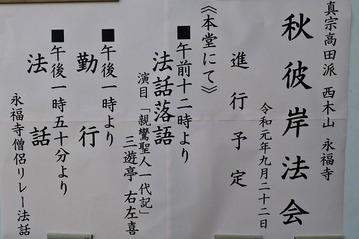 真宗高田派 西木山 永福寺
秋彼岸法会
令和元年九月二十二日
進行予定
《本堂にて》
■午前十二時より
法話落語
演目「親鸞聖人一代記」
三遊亭 右左喜
■午後一時より
勤行
■午後一時五十分より
法話
永福寺僧侶リレー法話